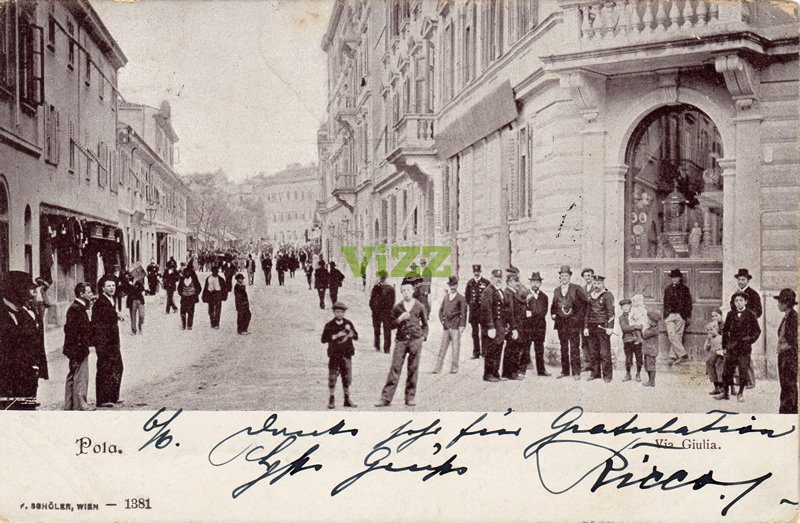 ViZZ
Pola. 6/6 Danke sehr für Gratulation
Via Giulia.
Grüße Ricco./-
F. SCHÖLER, WIEN – 1381